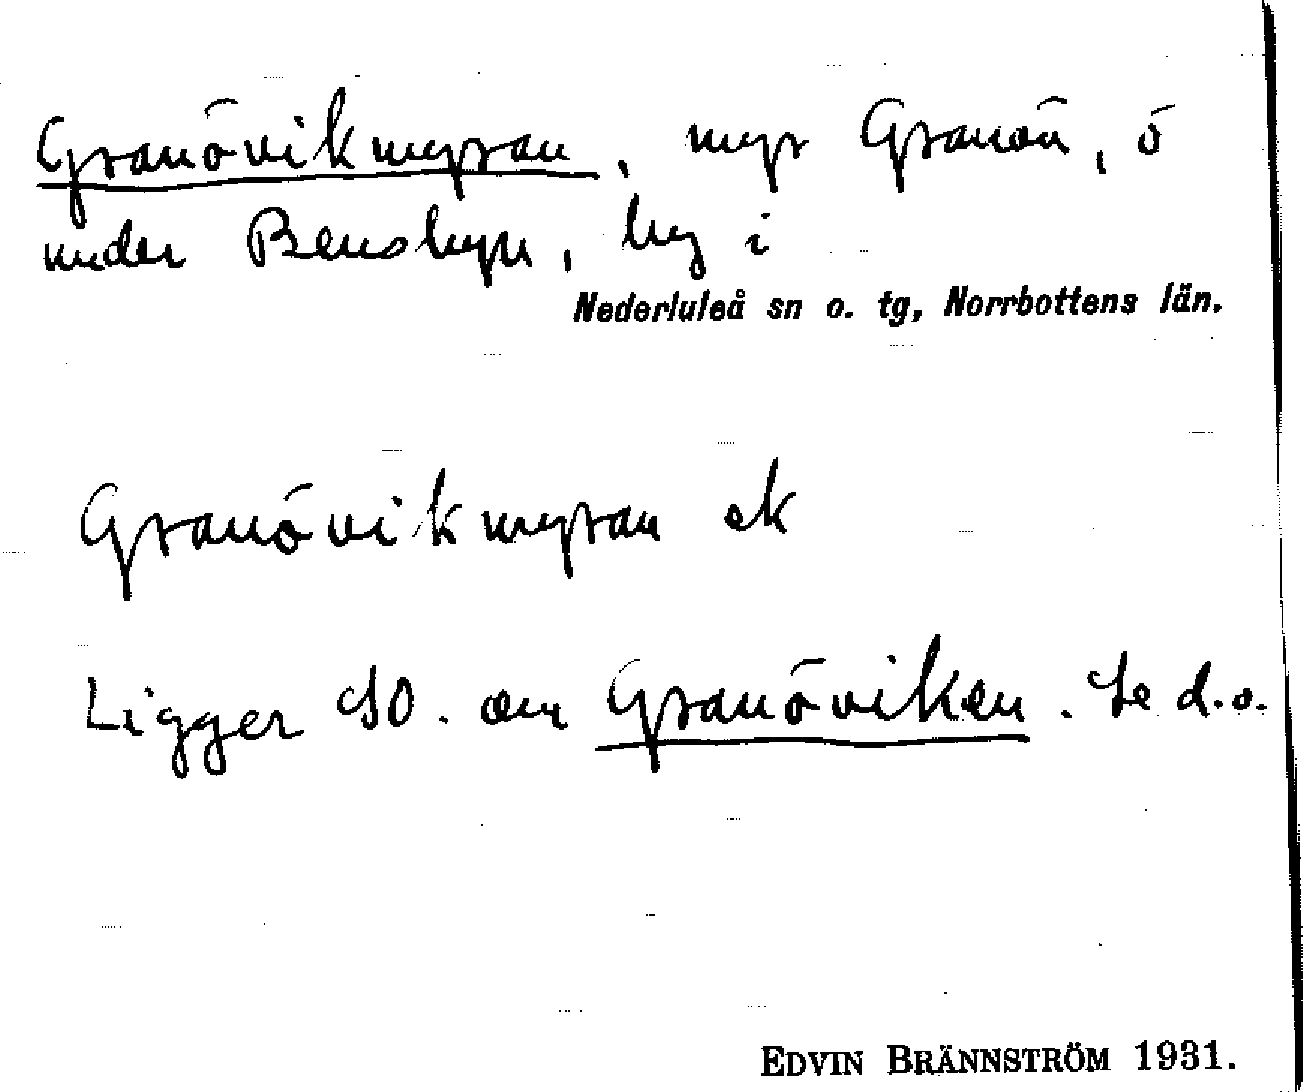 Granövikmyran, myr Granön, ö
under Bensbyn, by i
Nederluleå sn o. tg, Norrbottens län.
Granövikmyran ek
Ligger SO. om Granöviken. Se d.o.
EDVIN BRÄNNSTRÖM 1931.